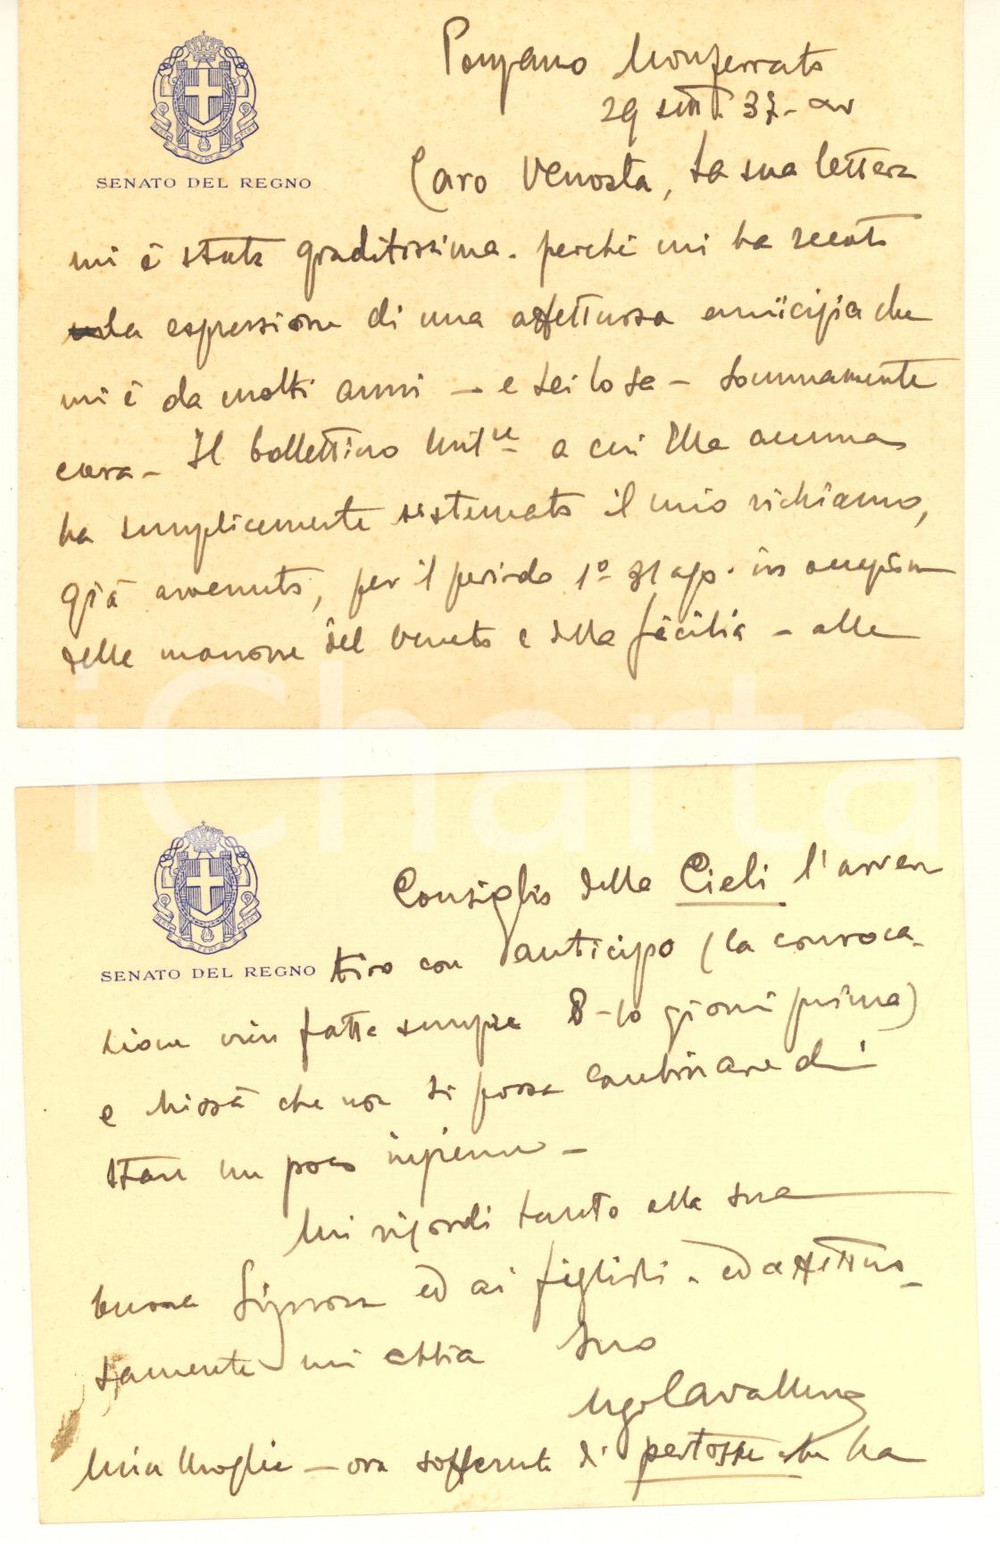 SENATO DEL REGNO
Ponzano Monferrato
29 sett. 37 - XV
Caro Venosta, La sua lettera
mi è stata graditissima. perchè mi ha recato
la espressione di una affettuosa amicizia che
mi è da molti anni - e Lei lo sa - sommamente
cara - Il bollettino Milre a cui Ella accenna
ha semplicemente sistemato il mio richiamo,
già avvenuto, per il periodo 1º - 31 ago. in occasione
delle manovre del Veneto e della Sicilia - alle
iCharta
SENATO DEL REGNO
Consiglio della Cieli l'avver
tirò con anticipo (la convoca-
zione vien fatta sempre 8-10 giorni prima)
e chissà che non si possa combinare di
stare un poco insieme -
Mi ricordi tanto alla sua
buona Signora ed ai figlioli - ed affettuo-
samente mi abbia Suo
Ugo Cavallero
Mia Moglie - ora sofferente di pertosse che ha